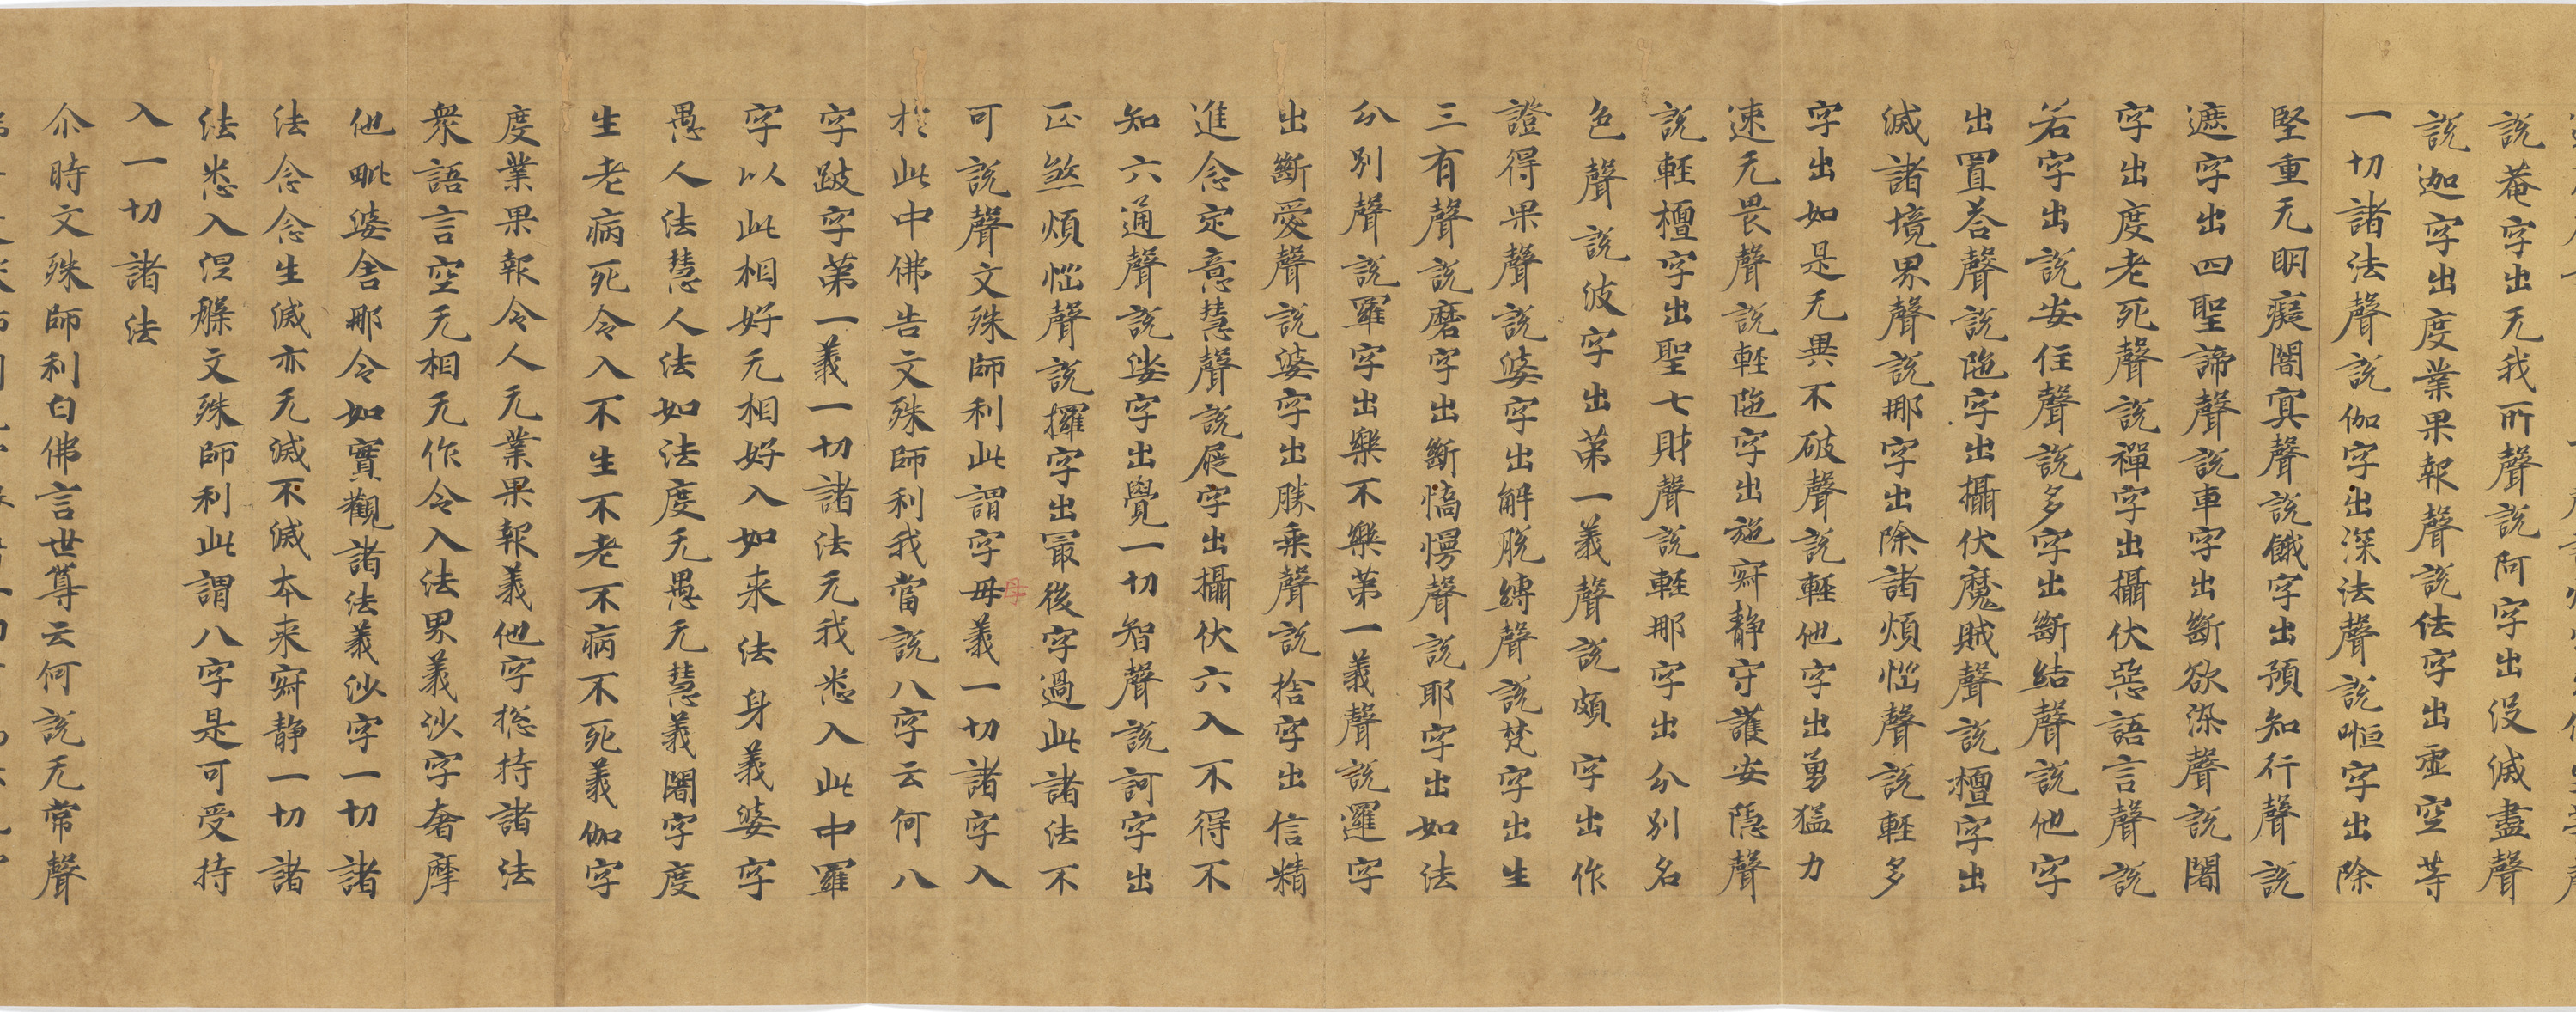 說菴字出无我所聲說阿字出沒滅盡聲
說迦字出度業果報聲說佉字出虛空等
一切諸法聲說伽字出深法聲說𠷐字出除
堅重无明癡闇冥聲說餓字出預知行聲說
遮字出四聖諦聲說車字出斷欲染聲說闍
字出度老死聲說禪字出攝伏惡語言聲說
若字出說安住聲說多字出斷結聲說他字
出置荅聲說陁字出攝伏魔賊聲說檀字出
滅諸境界聲說那字出除諸煩惱聲說輕多
字出如是无異不破聲說輕他字出勇猛力
速无畏聲說輕陁字出施寂靜守護安隱聲
說輕檀字出聖七財聲說輕那字出分別名
色聲說波字出第一義聲說頗字出作
證得果聲說婆字出解脫縛聲說梵字出生
三有聲說磨字出斷憍慢聲說耶字出如法
分別聲說羅字出樂不樂第一義聲說邏字
出斷愛聲說婆字出勝乘聲說捨字出信精
進念定意慧聲說屣字出攝伏六入不得不
知六通聲說娑字出覺一切智聲說訶字出
正煞煩惱聲說攞字出冣後字過此諸法不
可說聲文殊師利此謂字毋義一切諸字入
母
於此中佛告文殊師利我當說八字云何八
字跛字第一義一切諸法无我悉入此中羅
字以此相好无相好入如来法身義婆字
愚人法慧人法如法度无愚无慧義闍字度
生老病死令入不生不老不病不死義伽字
度業果報令人无業果報義他字揔持諸法
衆語言空无相无作令入法界義沙字奢摩
他毗婆舍那令如實觀諸法義沙字一切諸
法念念生滅亦无滅不滅本来寂靜一切諸
法悉入涅槃文殊師利此謂八字是可受持
入一切諸法
尒時文殊師利白佛言世尊云何說无常聲